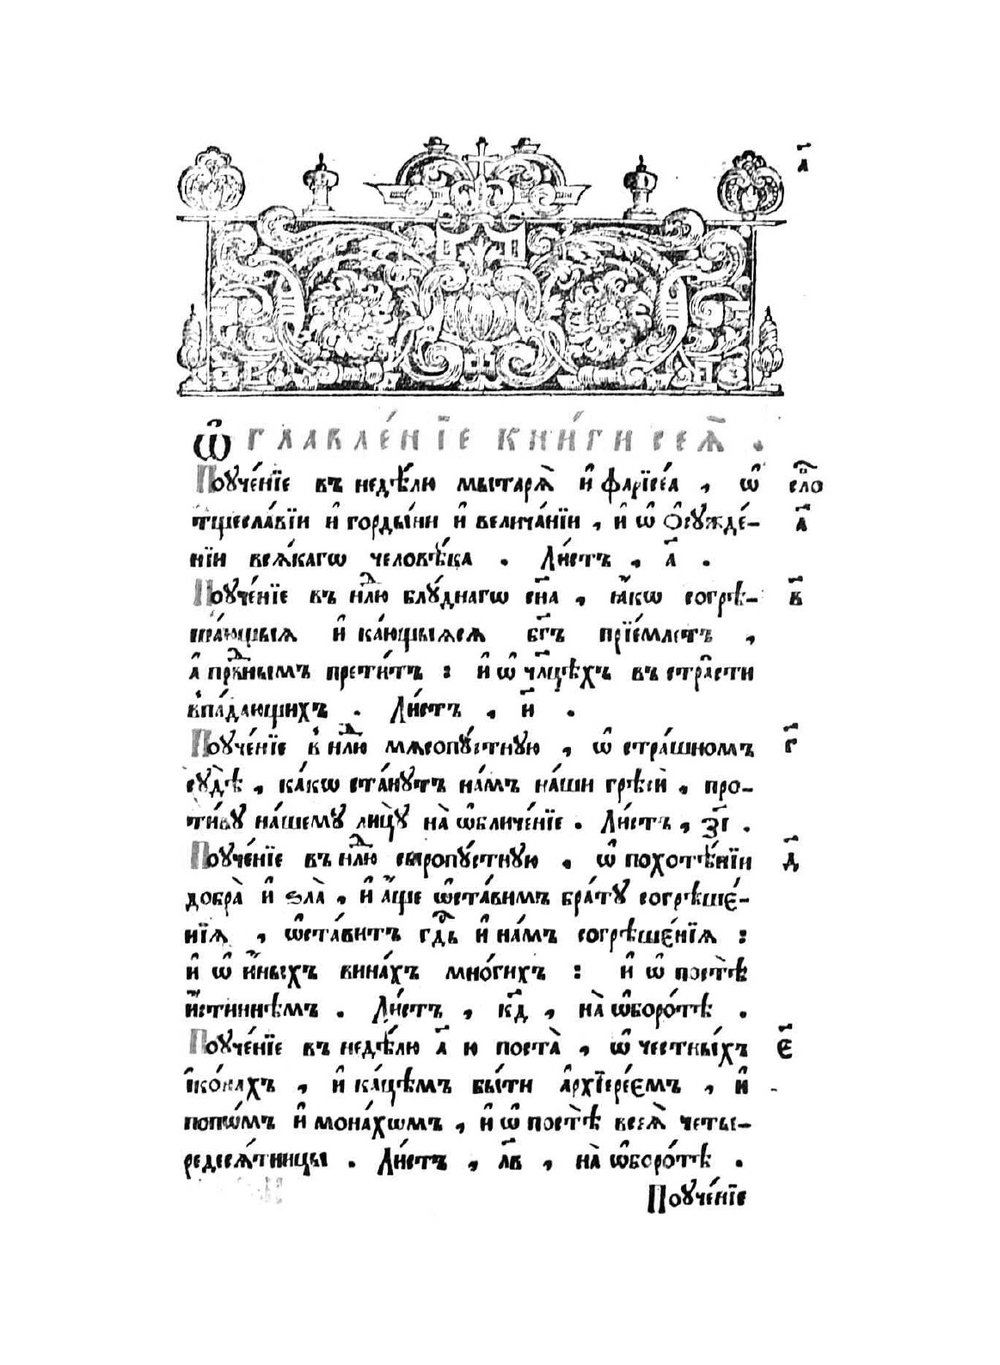 а҃
Ѡ҆главле́нїе кни́ги сеѧ̀ .
Поуче́нїе въ недѣ́лю мытарѧ̀ и҆ фарїсе́а , ѡ҆ сло́
тщесла́вїи и҆ горды́ни и҆ велича́нїи , и҆ ѡ҆ ѻ҆сꙋжде́- а҃
нїи всѧ́кагѡ человѣ́ка . Ли́стъ , а҃ .
Поуче́нїе въ нлⷣю блꙋ́днагѡ сн҃а , ꙗ҆́кѡ согрѣ- в҃
ша́ющыѧ и҆ ка́ющыѧсѧ бг҃ъ прїе́млетъ ,
а҆ прⷣвнымъ прети́тъ : и҆ ѡ҆ ча́дцѣхъ въ стра̑сти
впа́дающихъ . Ли́стъ , и҃ .
Поуче́нїе в̾ нлⷣю мѧсопꙋ́стнꙋю , ѡ҆ стра́шномъ г҃
сꙋдѣ̀ , ка́кѡ ста́нꙋтъ на́мъ на́ши грѣсѝ , про-
ти́вꙋ на́шемꙋ лицꙋ̀ на̀ ѡ҆бличе́нїе . Ли́стъ , з҃і .
Поуче́нїе въ нлⷣю сыропꙋ́стнꙋю . ѡ҆ похотѣ́нїи д҃
добра̀ и҆ ѕла̀ , и҆ а҆́ще ѡ҆ста́вимъ бра́тꙋ согрѣше́-
нїѧ , ѡ҆ста́витъ гдⷭ҇ь и҆ на́мъ согрѣше́нїѧ :
и҆ ѡ҆ и҆́ныхъ вина́хъ мно́гихъ : и҆ ѡ҆ постѣ̀
и҆́стиннѣмъ . Ли́стъ , к҃д , на̀ ѡ҆боро́тѣ .
Поуче́нїе въ недѣ́лю а҃ ю поста̀ , ѡ҆ честны́хъ є҃
і҆ко́нахъ , и҆ ка́цѣмъ бы́ти а҆рхїере́ємъ , и҆
попѡ́мъ и҆ мона́хѡмъ , и҆ ѡ҆ постѣ̀ всеѧ̀ четы-
редесѧ́тницы . Ли́стъ , л҃в , на̀ ѡ҆боро́тѣ .
Поуче́нїе